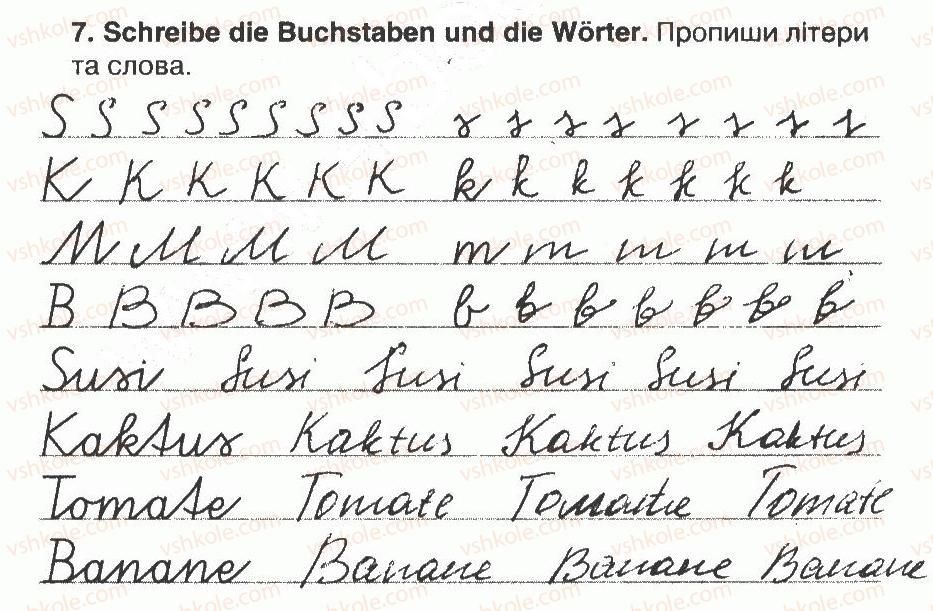 7. Schreibe die Buchstaben und die Wörter. Пропиши літери
та слова.
S S S S S S S S S s s s s s s s s
K K K K K K k k k k k k k
M M M M m m m m m
B B B B B b b b b b b b
Susi Susi Susi Susi Susi Susi
Kaktus Kaktus Kaktus Kaktus
Tomate Tomate Tomate Tomate
Banane Banane Banane Banane
vshkole.com